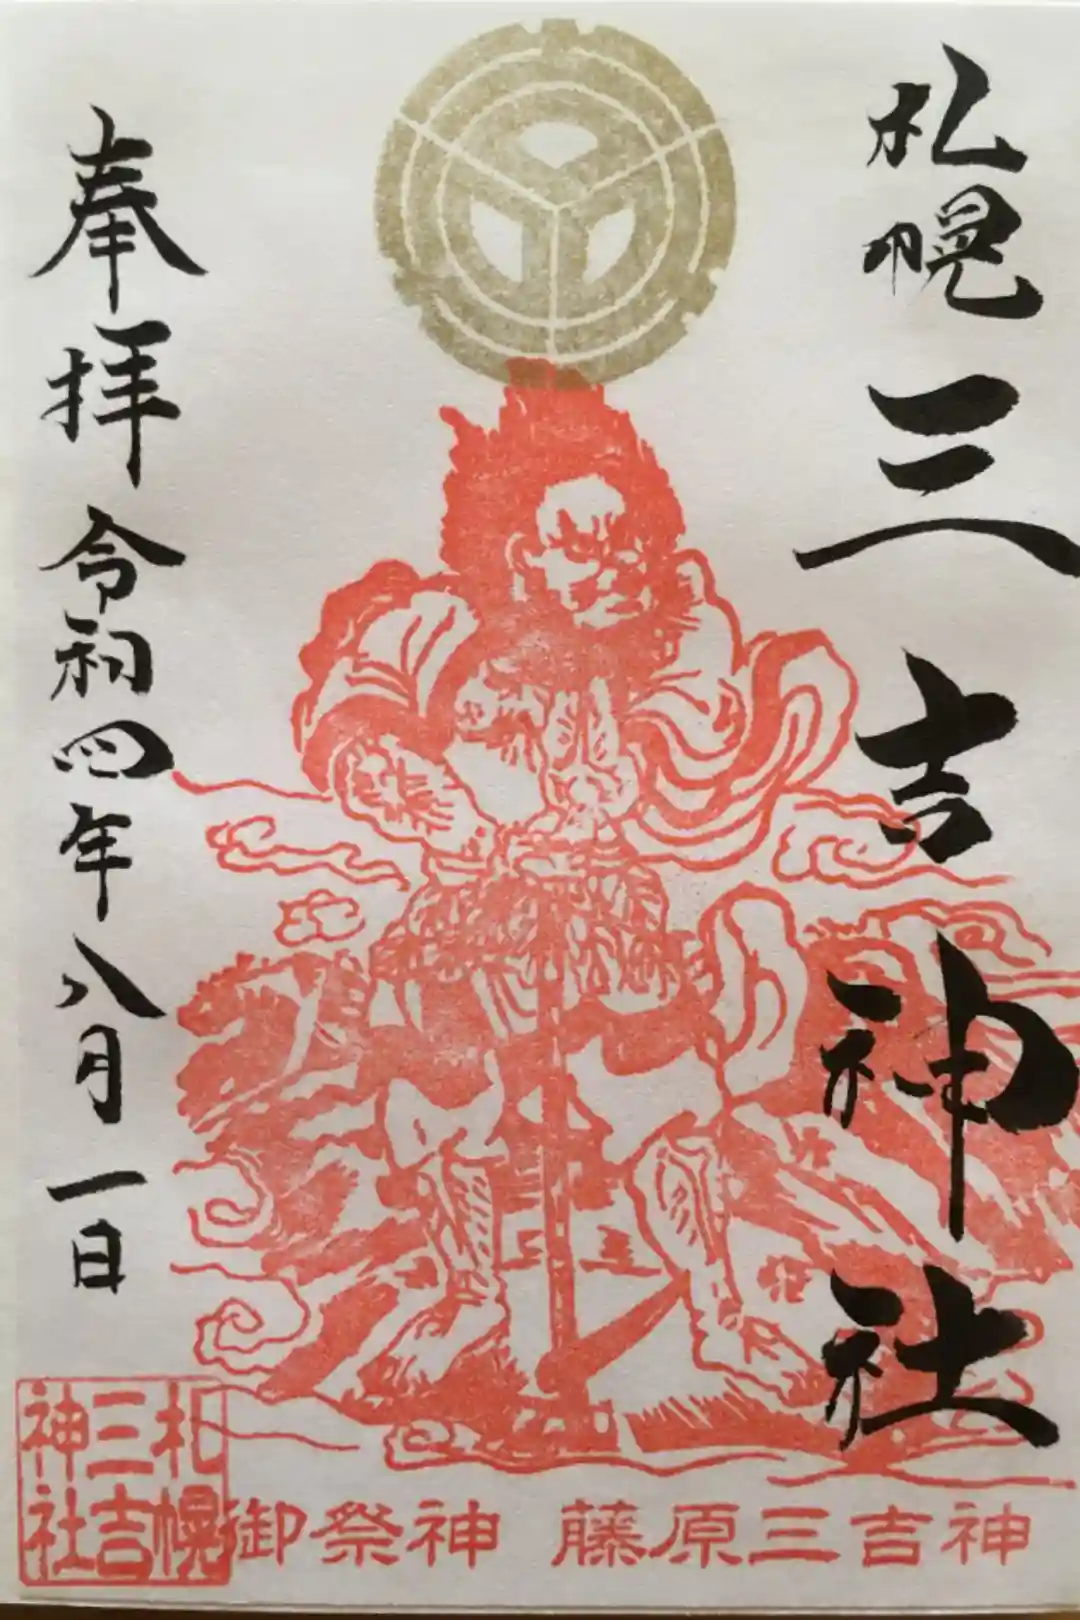 札幌三吉神社
奉拝 令和四年八月一日
札幌
三吉
神社
御祭神 藤原三吉神